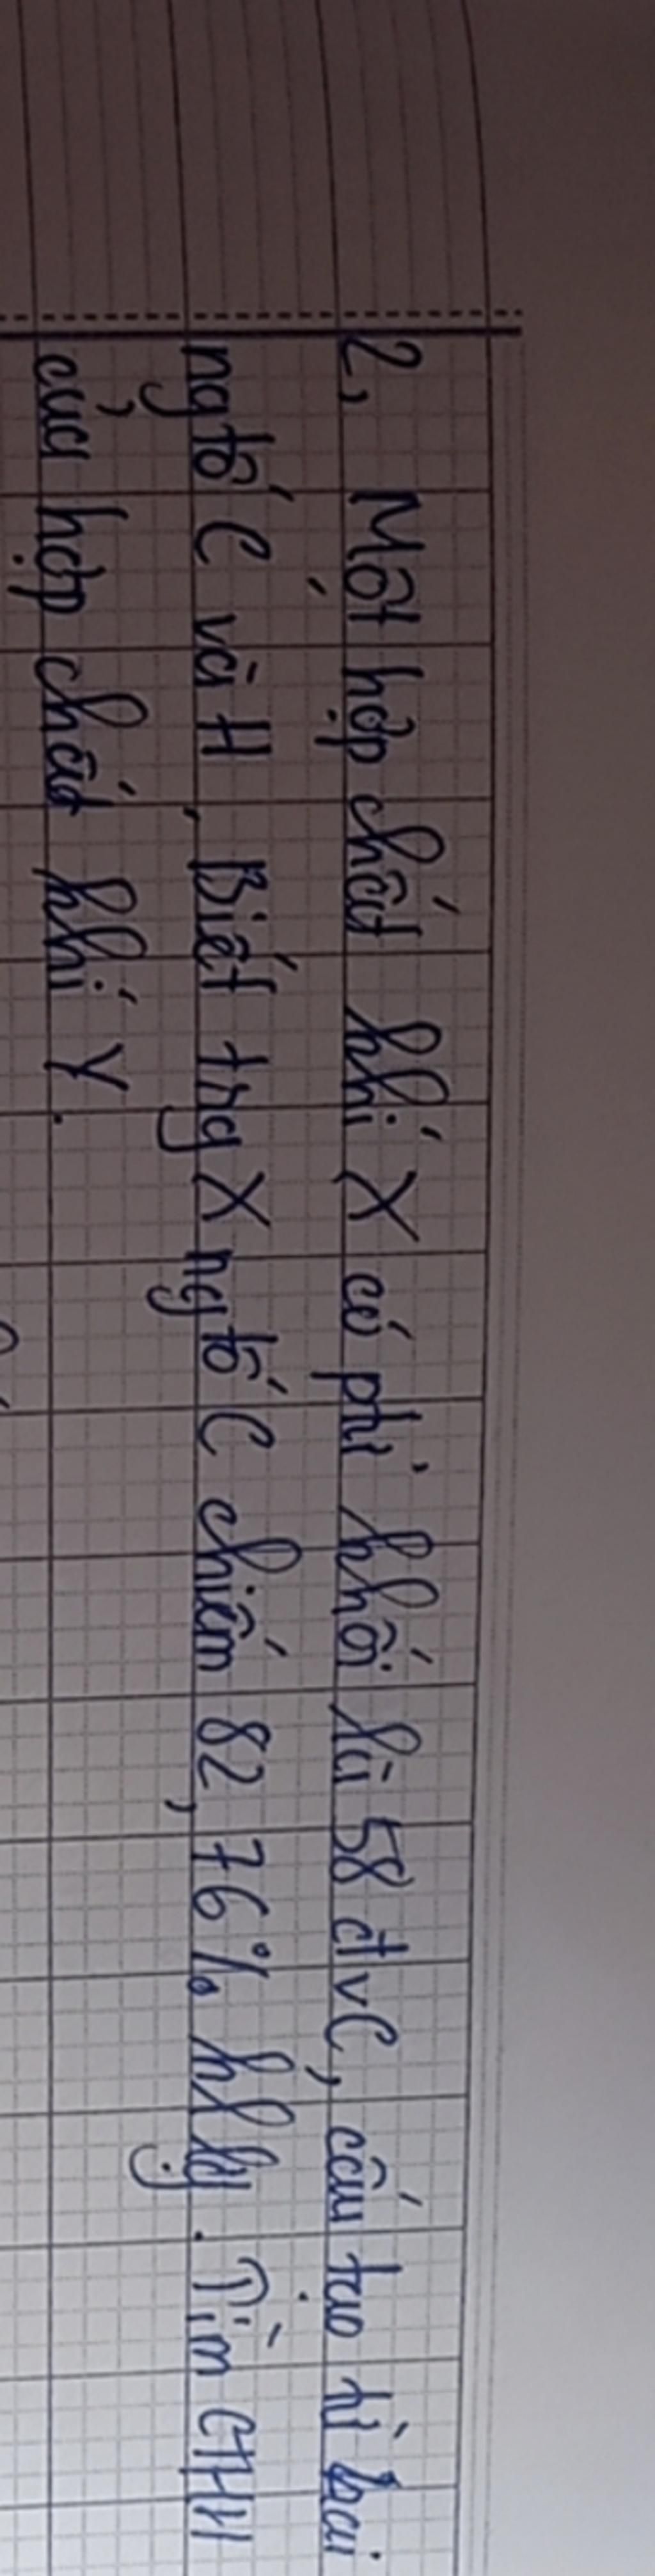 2, Một hợp chất khí X có phtử khối là 58 đvC, cấu tạo từ hai
ngtố C và H, Biết trg X ngtố C chiếm 82,76% klg. Tìm CTHH
của hợp chất khí Y.